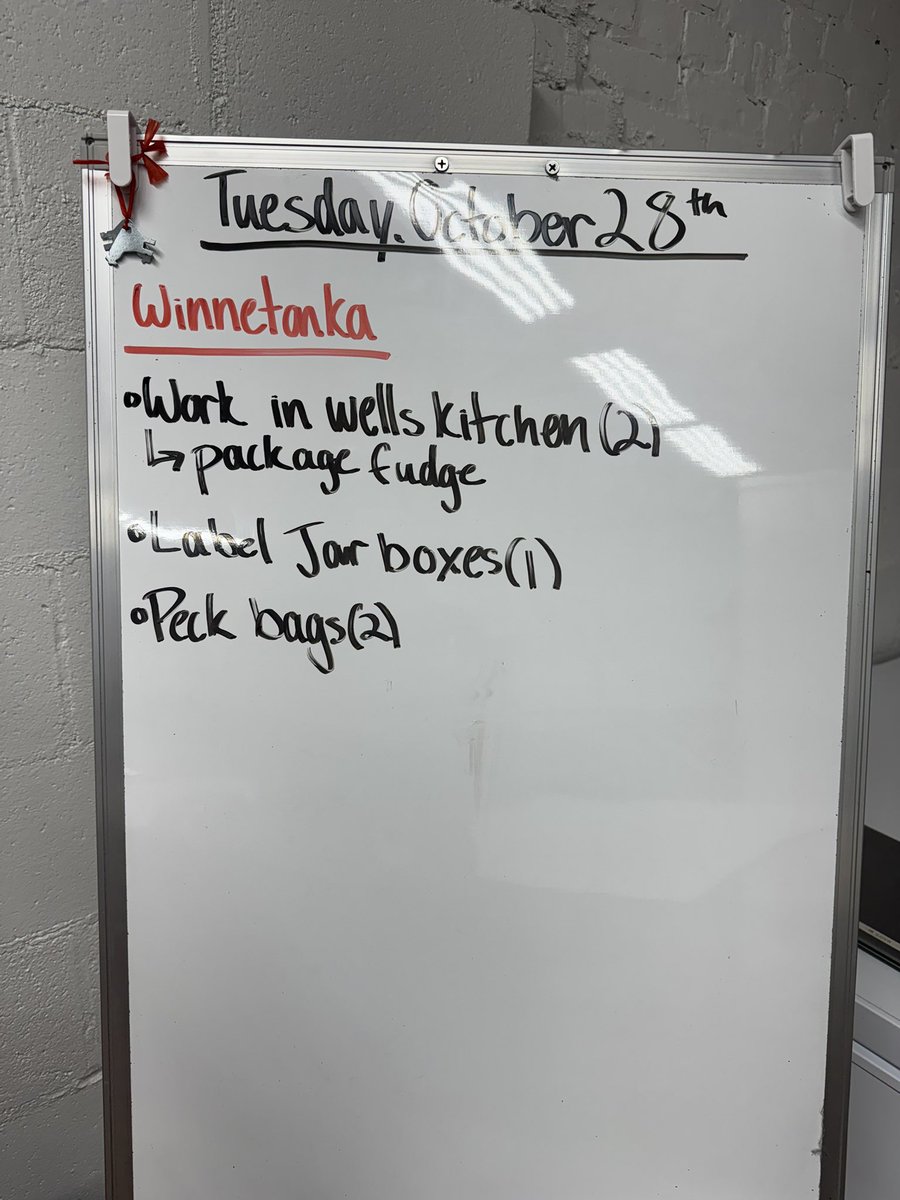 Tuesday. October 28th
Winnetonka
•Work in wells kitchen (2)
↳ package fudge
•Label Jar boxes (1)
•Peck bags (2)